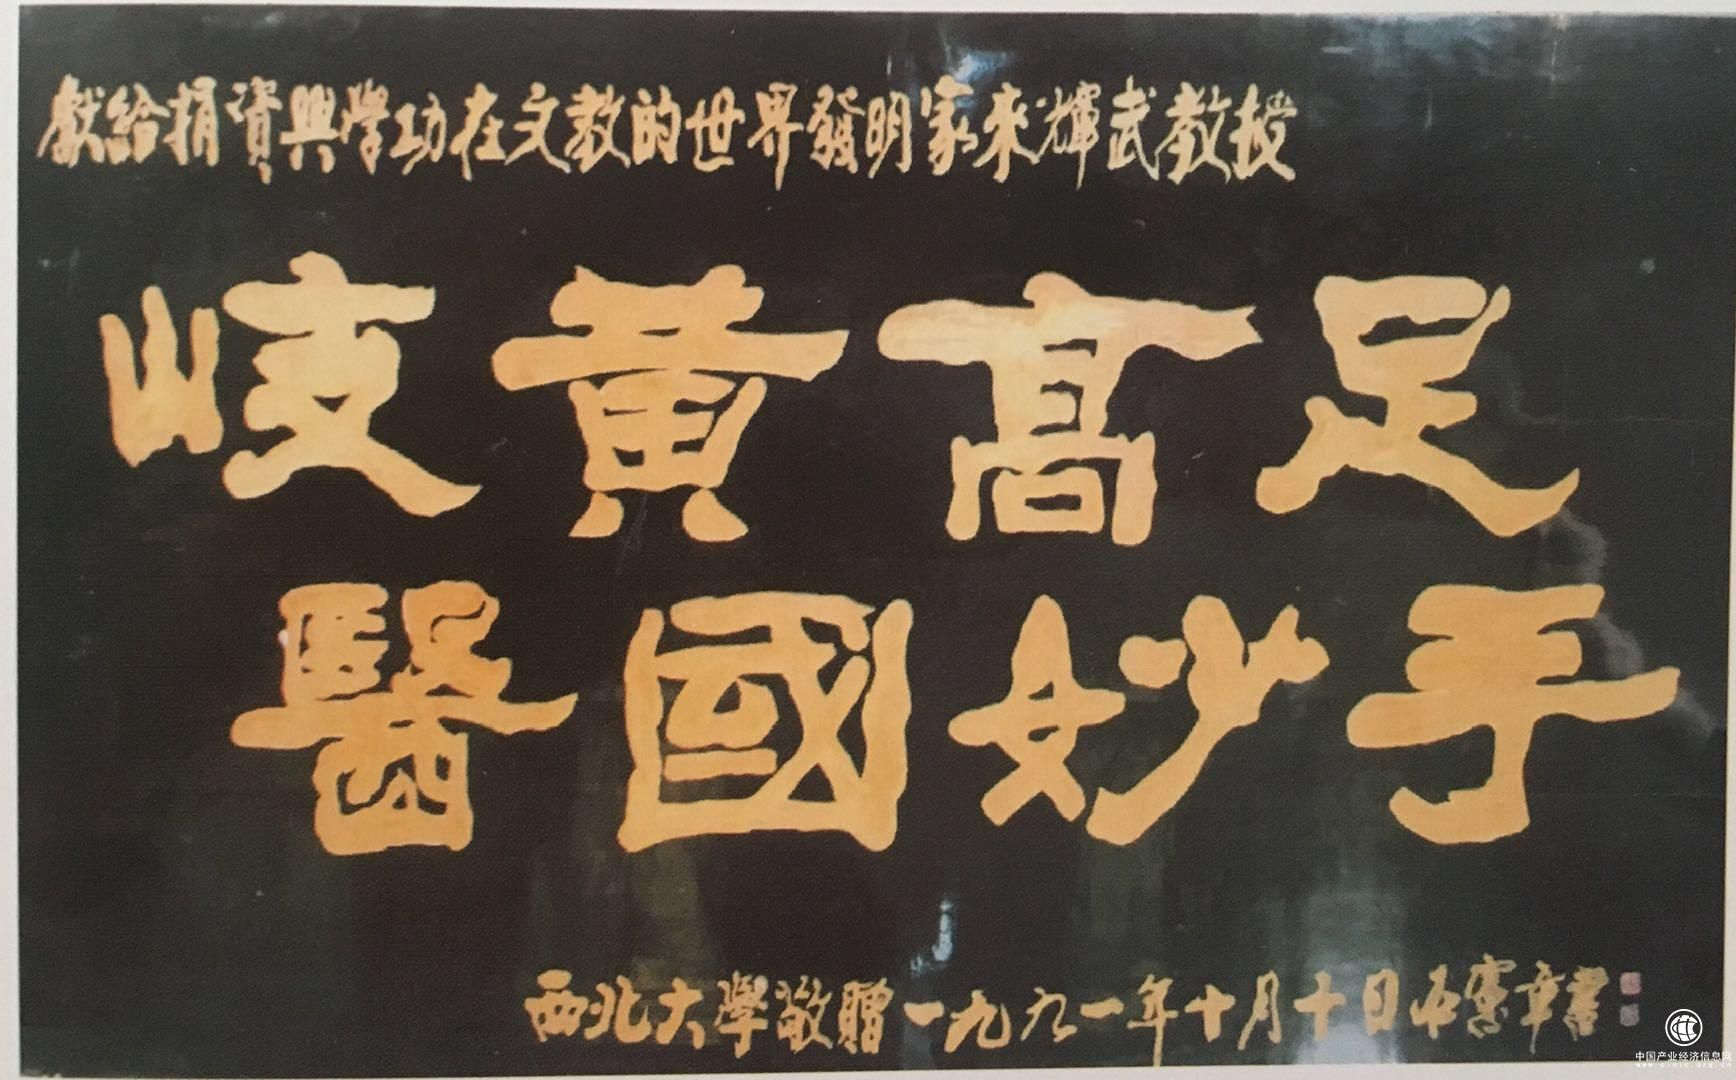 獻給捐資興學功在文教的世界發明家來輝武教授
岐黃高足
醫國妙手
西北大學敬贈一九九一年十月十日石憲章書
中国产业经济信息网
www.cinic.org.cn